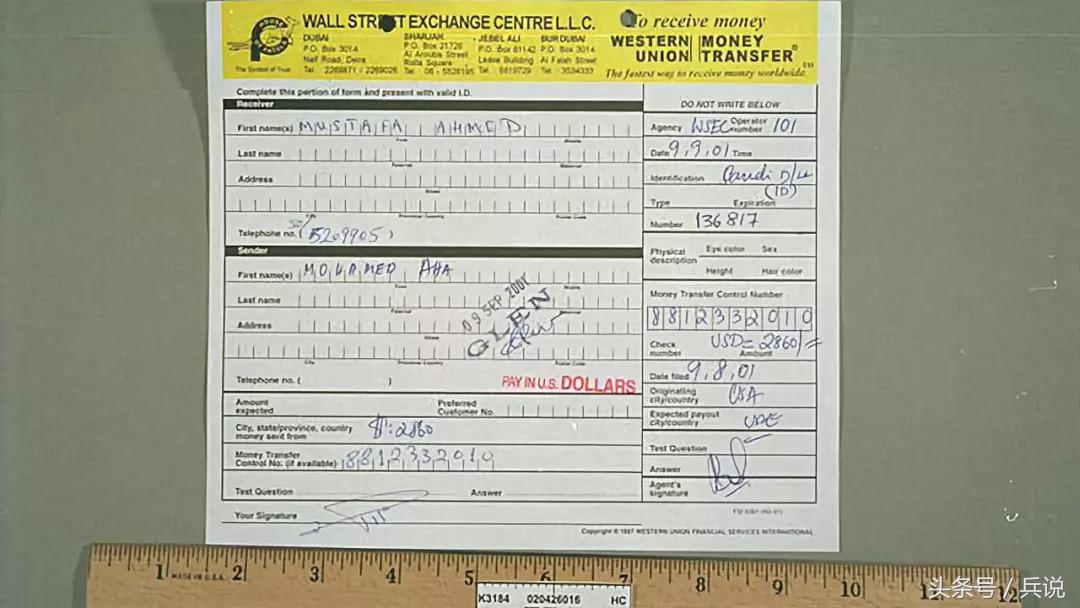 WALL STREET EXCHANGE CENTRE L.L.C.
To receive money
WESTERN UNION | MONEY TRANSFER
The fastest way to receive money worldwide.
DUBAI
P.O. Box 3014
Naif Road, Deira
SHARJAH
P.O. Box 21726
Al Arouba Street
Rolla Square
JEBEL ALI
P.O. Box 61142
BUR DUBAI
P.O. Box 3014
The Symbol of Trust
Complete this portion of form and present with valid I.D.
DO NOT WRITE BELOW
Receiver
First name(s) MUSTAFA AHMED
Last name
Address
Telephone no. ( 5209905 )
Sender
First name(s) MOHAMED
Last name
Address
Telephone no. ( )
09 SEP 2001
GLEN
PAY IN U.S. DOLLARS
Amount expected
Preferred Customer No.
City, state/province, country money sent from $: 2860
Money Transfer Control No. (if available) 8812332010
Test Question
Answer
Your Signature
Agency WSEC Operator number 101
Date 9,9,01 Time
Identification
(ID)
Type Expiration
Number 136817
Physical description Eye color Sex
Height Hair color
Money Transfer Control Number
8812332010
Check number USD= 2860/= Amount
Date filed 9,8,01
Originating city/country USA
Expected payout city/country UAE
Test Question
Answer
Agent's signature
Copyright © 1997 WESTERN UNION FINANCIAL SERVICES INTERNATIONAL
1 MADE IN U.S.A. 2 3 4 5 6 7 8 9 10 11 12
K3184 020426016 HC
头条号 / 兵说